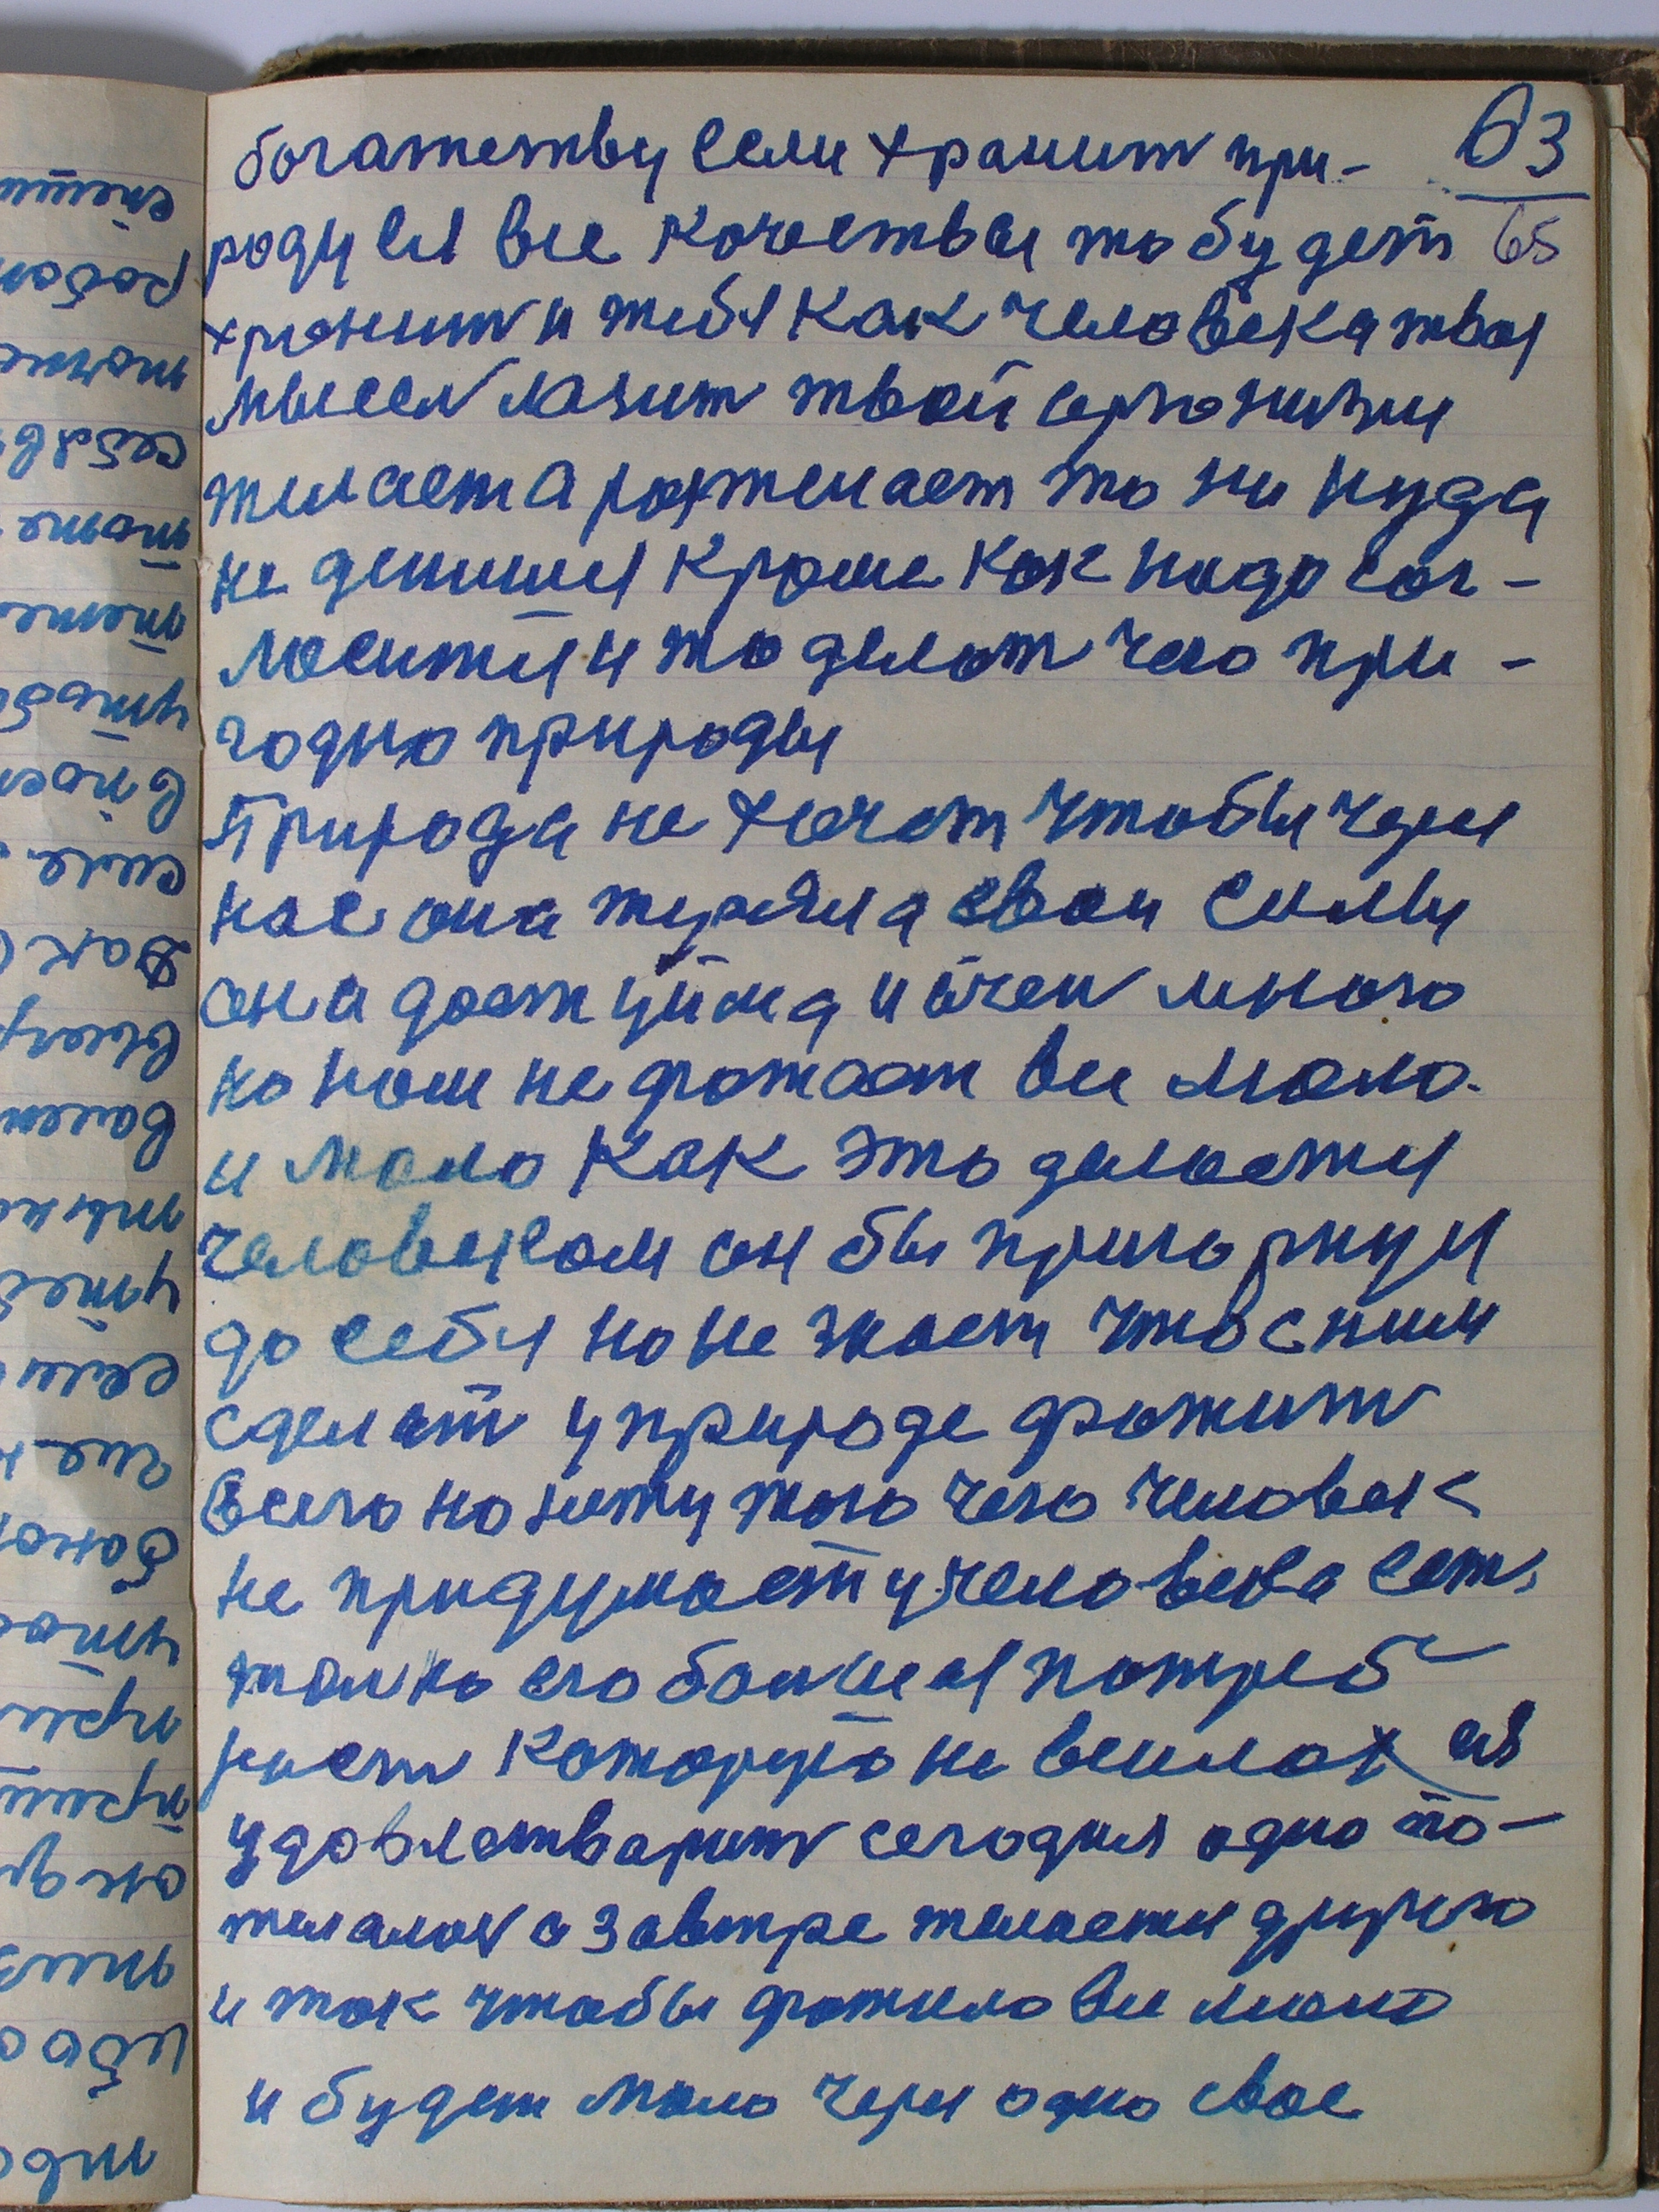 63
65
богатству если хранит при-
роду ея все качествы то будет
хранит и тебя как человека твоя
мысел лазит твой организм
желает а ражжелает то ни куда
не денишся кроме как надо сог-
лоситися и то делат чего при-
годно природы
Природа не хочет чтобы через
нас она теряла свои силы
она достуйма и очен много
но нам не фатает все мало
и мало как это делается
человеком он бы пригорнул
до себя но не знает что с ним
сделат у природе фатит
всего но нету того чего человек
не придумает у человека ест
толко его болшая потреб
ност которую не всилах ея
удовлетварит сегодня одно по-
желалос а завтре желается другого
и так чтобы фатило все мало
и будет мало через одно свое